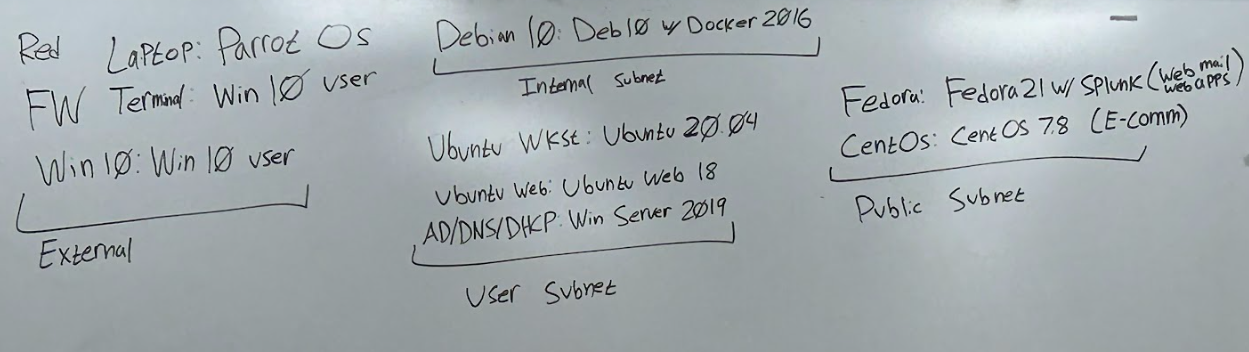 Red Laptop: Parrot Os
FW Terminal: Win 10 user
Win 10: Win 10 user
External
Debian 10: Deb10 w/ Docker 2016
Internal Subnet
Ubuntu Wkst: Ubuntu 20.04
Ubuntu Web: Ubuntu Web 18
AD/DNS/DHCP: Win Server 2019
User Subnet
Fedora: Fedora21 w/ Splunk (Web mail web apps)
CentOs: CentOS 7.8 (E-comm)
Public Subnet